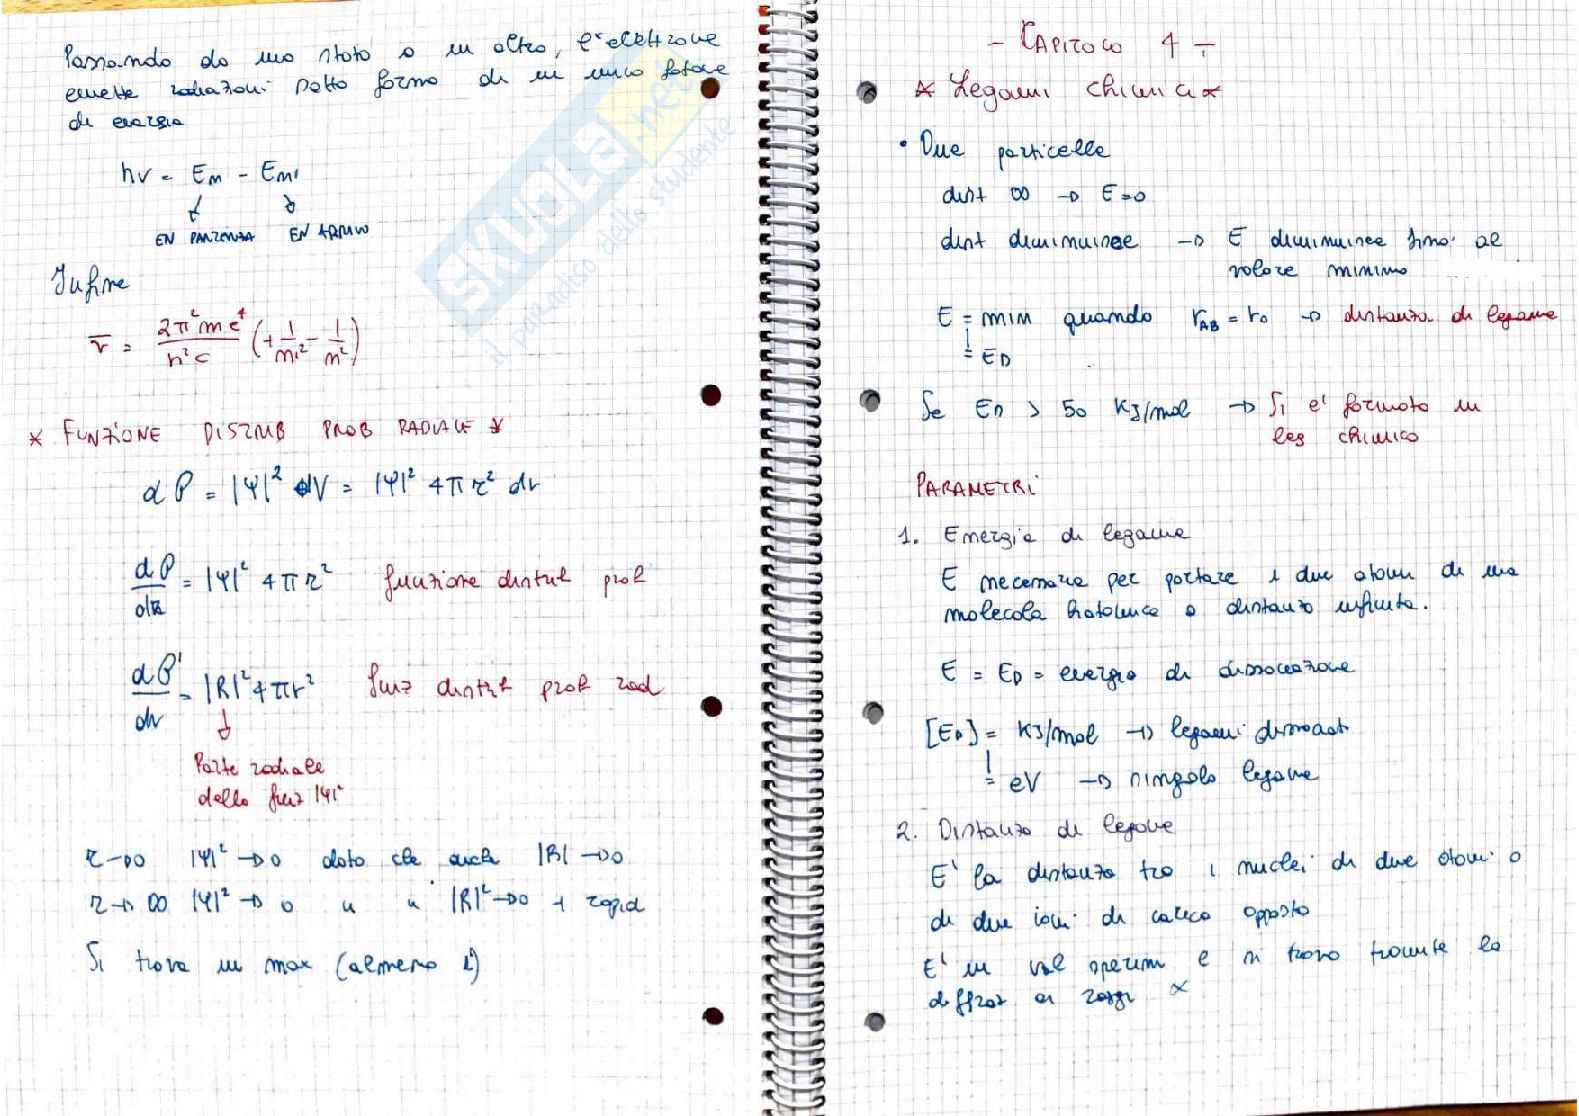 Passando da uno stato a un altro, l'elettrone
emette radiazioni sotto forma di un unico fotone
di energia
hν = En - En'
EN PARTENZA EN ARRIVO
Infine
ν̅ = 2π²me⁴/h²c (+1/n'² - 1/n²)
* FUNZIONE DISTRIB PROB RADIALE *
dP = |Ψ|² dV = |Ψ|² 4πr² dr
dP/dr = |Ψ|² 4πr² funzione distrib prob
dP'/dr = |R|² 4πr² funz distrib prob rad
Parte radiale
della funz |Ψ|²
r→0 |Ψ|²→0 dato che anche |R|→0
r→∞ |Ψ|²→0 " " |R|²→0 + rapid
Si trova un max (almeno 1)
SKUOLA.net
il paradiso dello studente
- CAPITOLO 4 -
* Legami chimici *
• Due particelle
dist ∞ → E=0
dist diminuisce → E diminuisce fino al
valore minimo
E = min quando rAB = r0 → distanza di legame
= ED
Se ED > 50 KJ/mol → Si e' formato un
leg chimico
PARAMETRI
1. Energia di legame
E necessaria per portare i due atomi di una
molecola biatomica a distanza infinita.
E = ED = energia di dissociazione
[ED] = KJ/mol → legami dissociati
= eV → singolo legame
2. Distanza di legame
E' la distanza tra i nuclei di due atomi o
di due ioni di carica opposta
E' un val sperim e si trova tramite la
diffraz ai raggi x